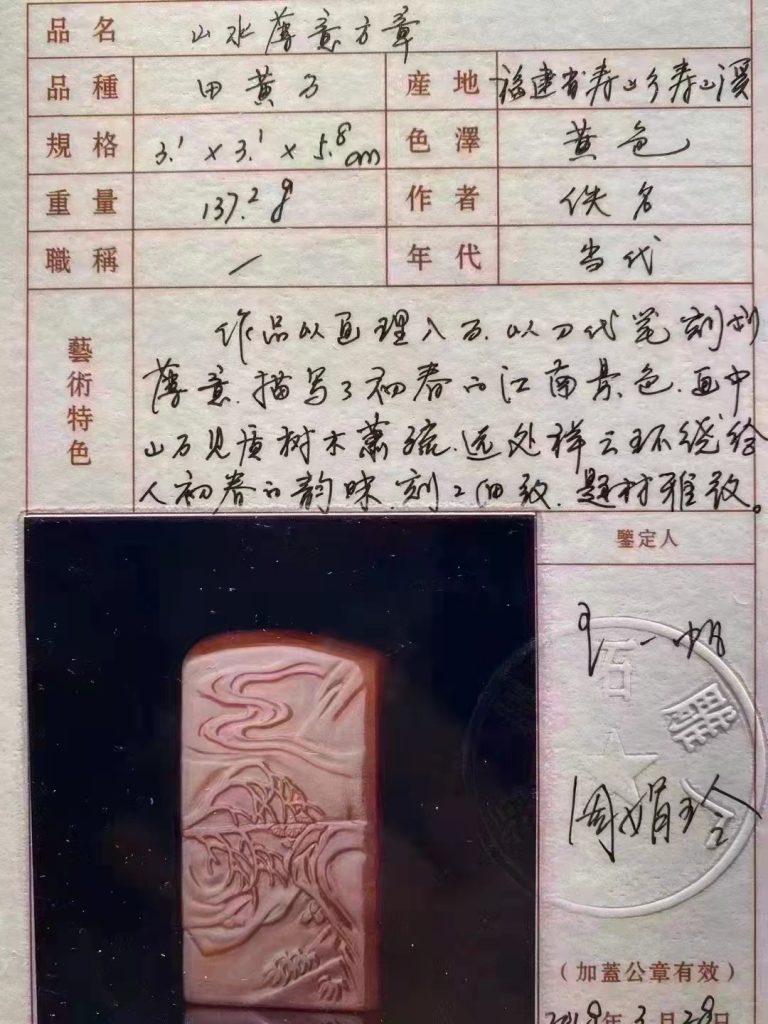 品名 山水薄意方章
品種 田黄石 産地 福建省寿山乡寿山溪
規格 3.1 × 3.1 × 5.8 cm 色澤 黄色
重量 137.2 g 作者 佚名
職稱 / 年代 当代
藝術特色
作品以画理入石.以刀代笔刻划
薄意.描写了初春的江南景色.画中
山石见质树木萧疏.远处祥云环绕给
人初春的韵味.刻工细致.题材雅致。
鑒定人
王一帆
石雕
周娟玲
(加蓋公章有效)
2018年3月28日